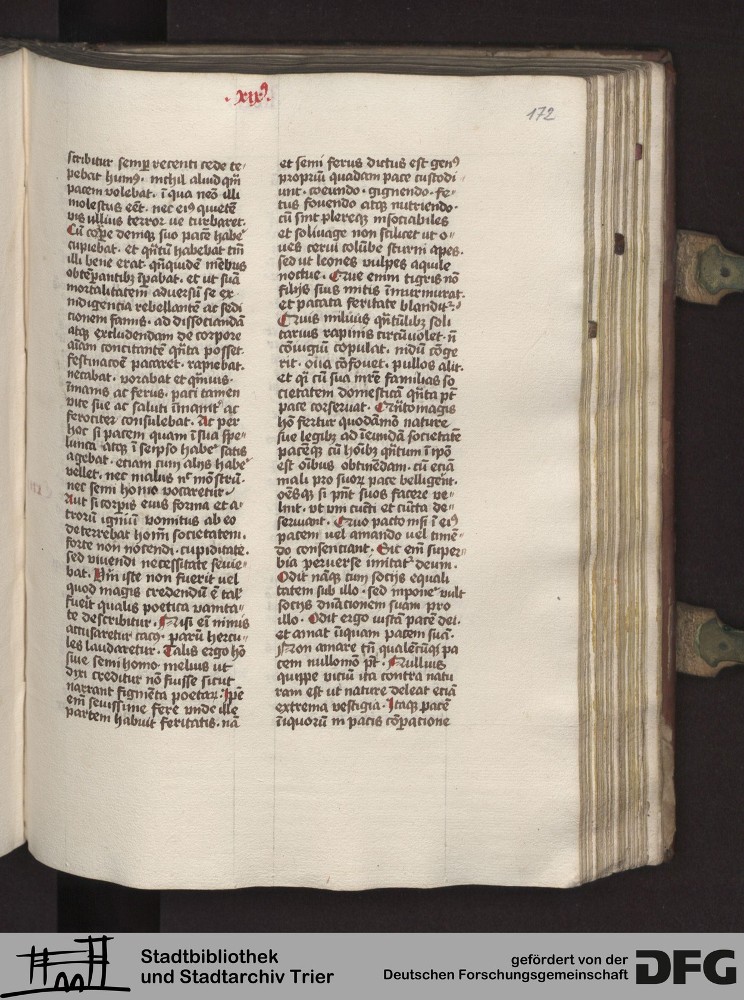 .xix⁹.
172
scribitur semꝑ recenti cede te⸗
pebat humꝰ. nichil aliud qm̄
pacem volebat. ī qua neō illi
molestus eēt. nec eiꝰ quietē
vis ullius terror ue turbaret.
Cū corꝑe deniqꝫ suo pacē habē
cupiebat. et qn̄tū habebat tm̄
illi bene erat. qn̄quidē mēbris
obtēꝑantibꝫ īpabat. et ut suā
mortalitatem adversū se ex
indigencia rebellantē ac sedi
cionem famis. ad dissociandā
atqꝫ excludendam de corpore
aīam concitantē qn̄ta posset
festinacōe pacaret. rapiebat.
necabat. vorabat et qm̄uis.
īmanis ac ferus. paci tamen
vite sue ac saluti īmanit᷑ ac
ferociter consulebat. Ac per
hoc si pacem quam ī sua spe⸗
lunca atqꝫ ī seipso habē satis
agebat. etiam cum alijs habē
vellet. nec malus nc̄ mōstrū.
nec semi homo vocaretur.
Aut si corꝑis eius forma et a⸗
trorū igniū vomitus ab eo
deterrebat hoīm societatem.
forte non nocendi. cupiditate.
sed vivendi necessitate seuie⸗
bat. Vm̄ iste non fuerit vel
quod magis credendū ē tal᷑
fuerit qualis poetica vanita⸗
te describitur. Nisi eī nimis
accusaretur cacꝰ. parū hercu⸗
les laudaretur. Talis ergo hō
siue semi homo melius ut
dixi creditur nō fuisse sicut
narrant figmēta poetaꝝ. Ipē
em̄ seuissime fere vnde ille
partem habuit feritatis. nā
et semi ferus dictus est genꝰ
propriū quadam pace custodi
unt. coeundo. gignendo. fe⸗
tus fouendo atqꝫ nutriendo.
cū sint pleręqꝫ insociabiles
et soliuage non scilicet ut o⸗
ues cerui colūbe sturni apes.
sed ut leones vulpes aquile
noctue. Que enim tigris nō
filijs suis mitis īmurmurat.
et pacata feritate blandit᷑.
Quis miluus qn̄tūlibꝫ soli
tarius rapinis circūuolet. n̄
cōiugiū copulat. nidū cōge
rit. oua cōfouet. pullos alit.
et qī cū sua mr̄e familias so
cietatem domesticā qn̄ta pt̄
pace conseruat. Qn̄to magis
hō fertur quodāmō nature
sue legibꝫ ad ineundā societatē
pacēqꝫ cū hōibꝫ qn̄tum ī ipō
est oībus obtinēdam. cū eciā
mali pro suoꝝ pace belligerēt.
oēsqꝫ si pn̄t suos facere ve⸗
lint. vt vni cūcti et cūcta de⸗
seruiant. Quo pacto nisi ī eiꝰ
pacem vel amando vel timē⸗
do consenciant. Sic em̄ super⸗
bia peruerse imitat᷑ deum.
Odit nāqꝫ cum socijs equali
tatem sub illo. sed inpone᷑ vult
socijs dn̄acionem suam pro
illo. Odit ergo iustā pacē dei.
et amat iniquam pacem suā.
Non amare tn̄ qualēcūqꝫ pa
cem nullomō pt̄. Nullius
quippe viciū ita contra natu
ram est ut nature deleat eciā
extrema vestigia. Itaqꝫ pacē
iniquorū in pacis cōꝑacione
Stadtbibliothek
und Stadtarchiv Trier
gefördert von der
Deutschen Forschungsgemeinschaft
DFG